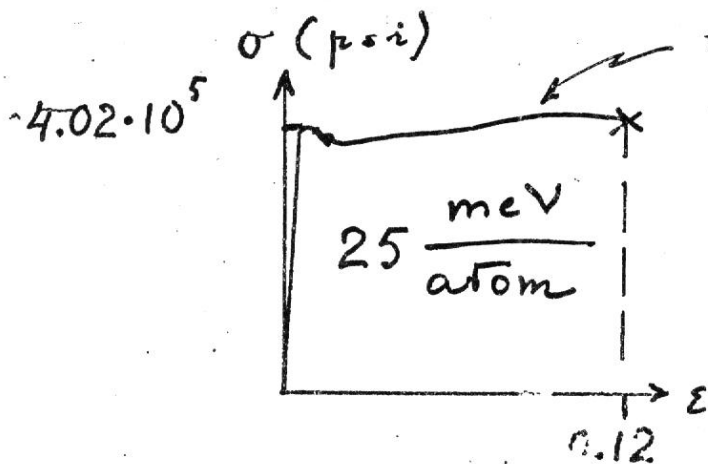 σ (psi)
~4.02·10⁵
25 meV
atom
ε
0.12